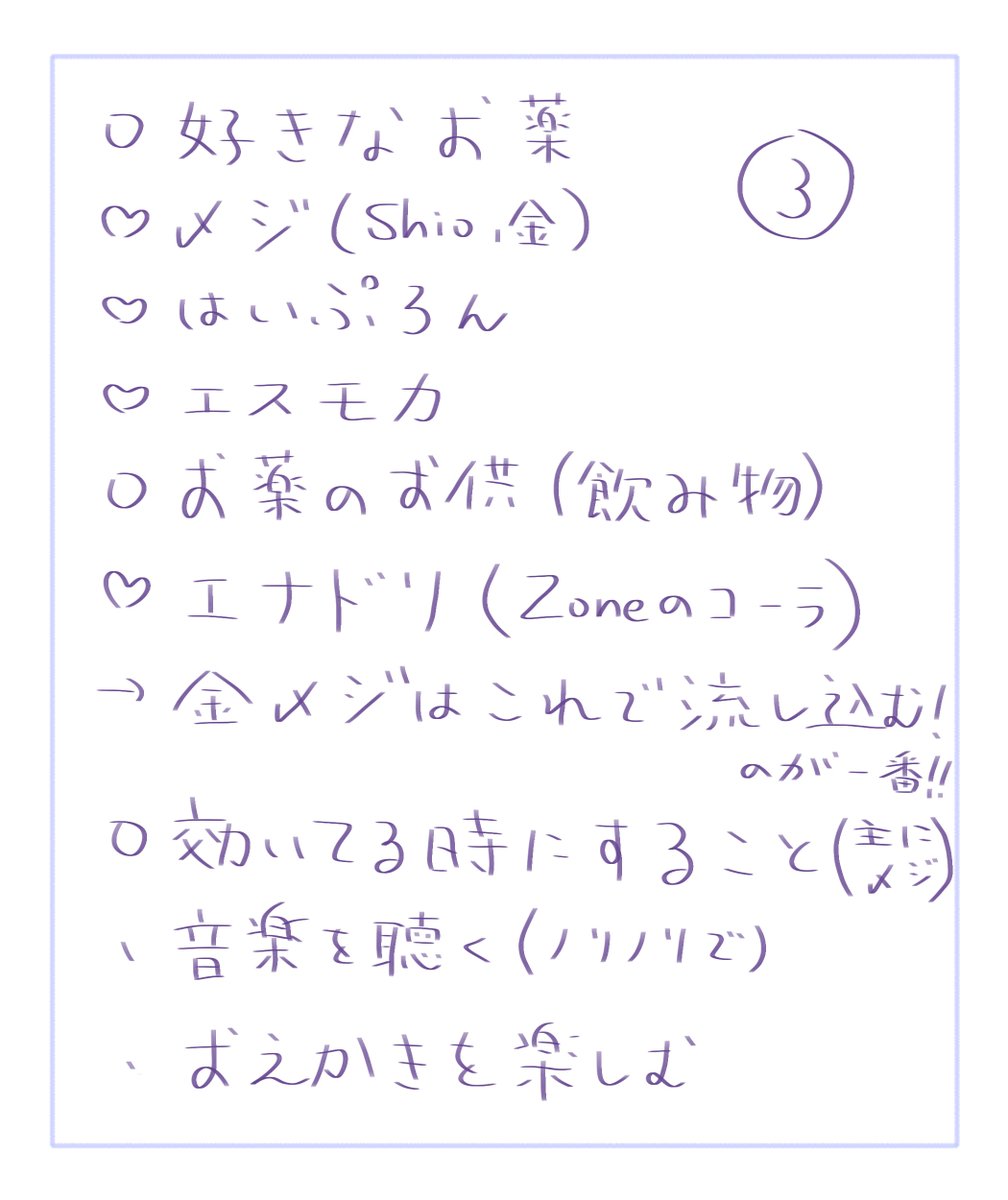 ○ 好きなお薬
③
♡ メジ(Shio,金)
♡ はいぷろん
♡ エスモカ
○ お薬のお供(飲み物)
♡ エナドリ(Zoneのコーラ)
→ 金メジはこれで流し込む!
のが一番!!
○ 効いてる時にすること(主にメジ)
、音楽を聴く(ノリノリで)
、おえかきを楽しむ